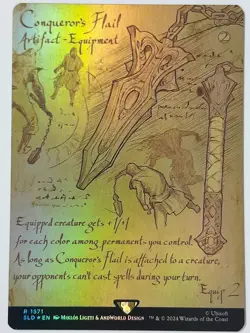 Conqueror's Flail
2
Artifact - Equipment
Equipped creature gets +1/+1
for each color among permanents you control.
As long as Conqueror's Flail is attached to a creature,
your opponents can't cast spells during your turn.
Equip 2
R 1671
SLD ★ EN Miklós Ligeti & Andworld Design
© Ubisoft
™ & © 2024 Wizards of the Coast